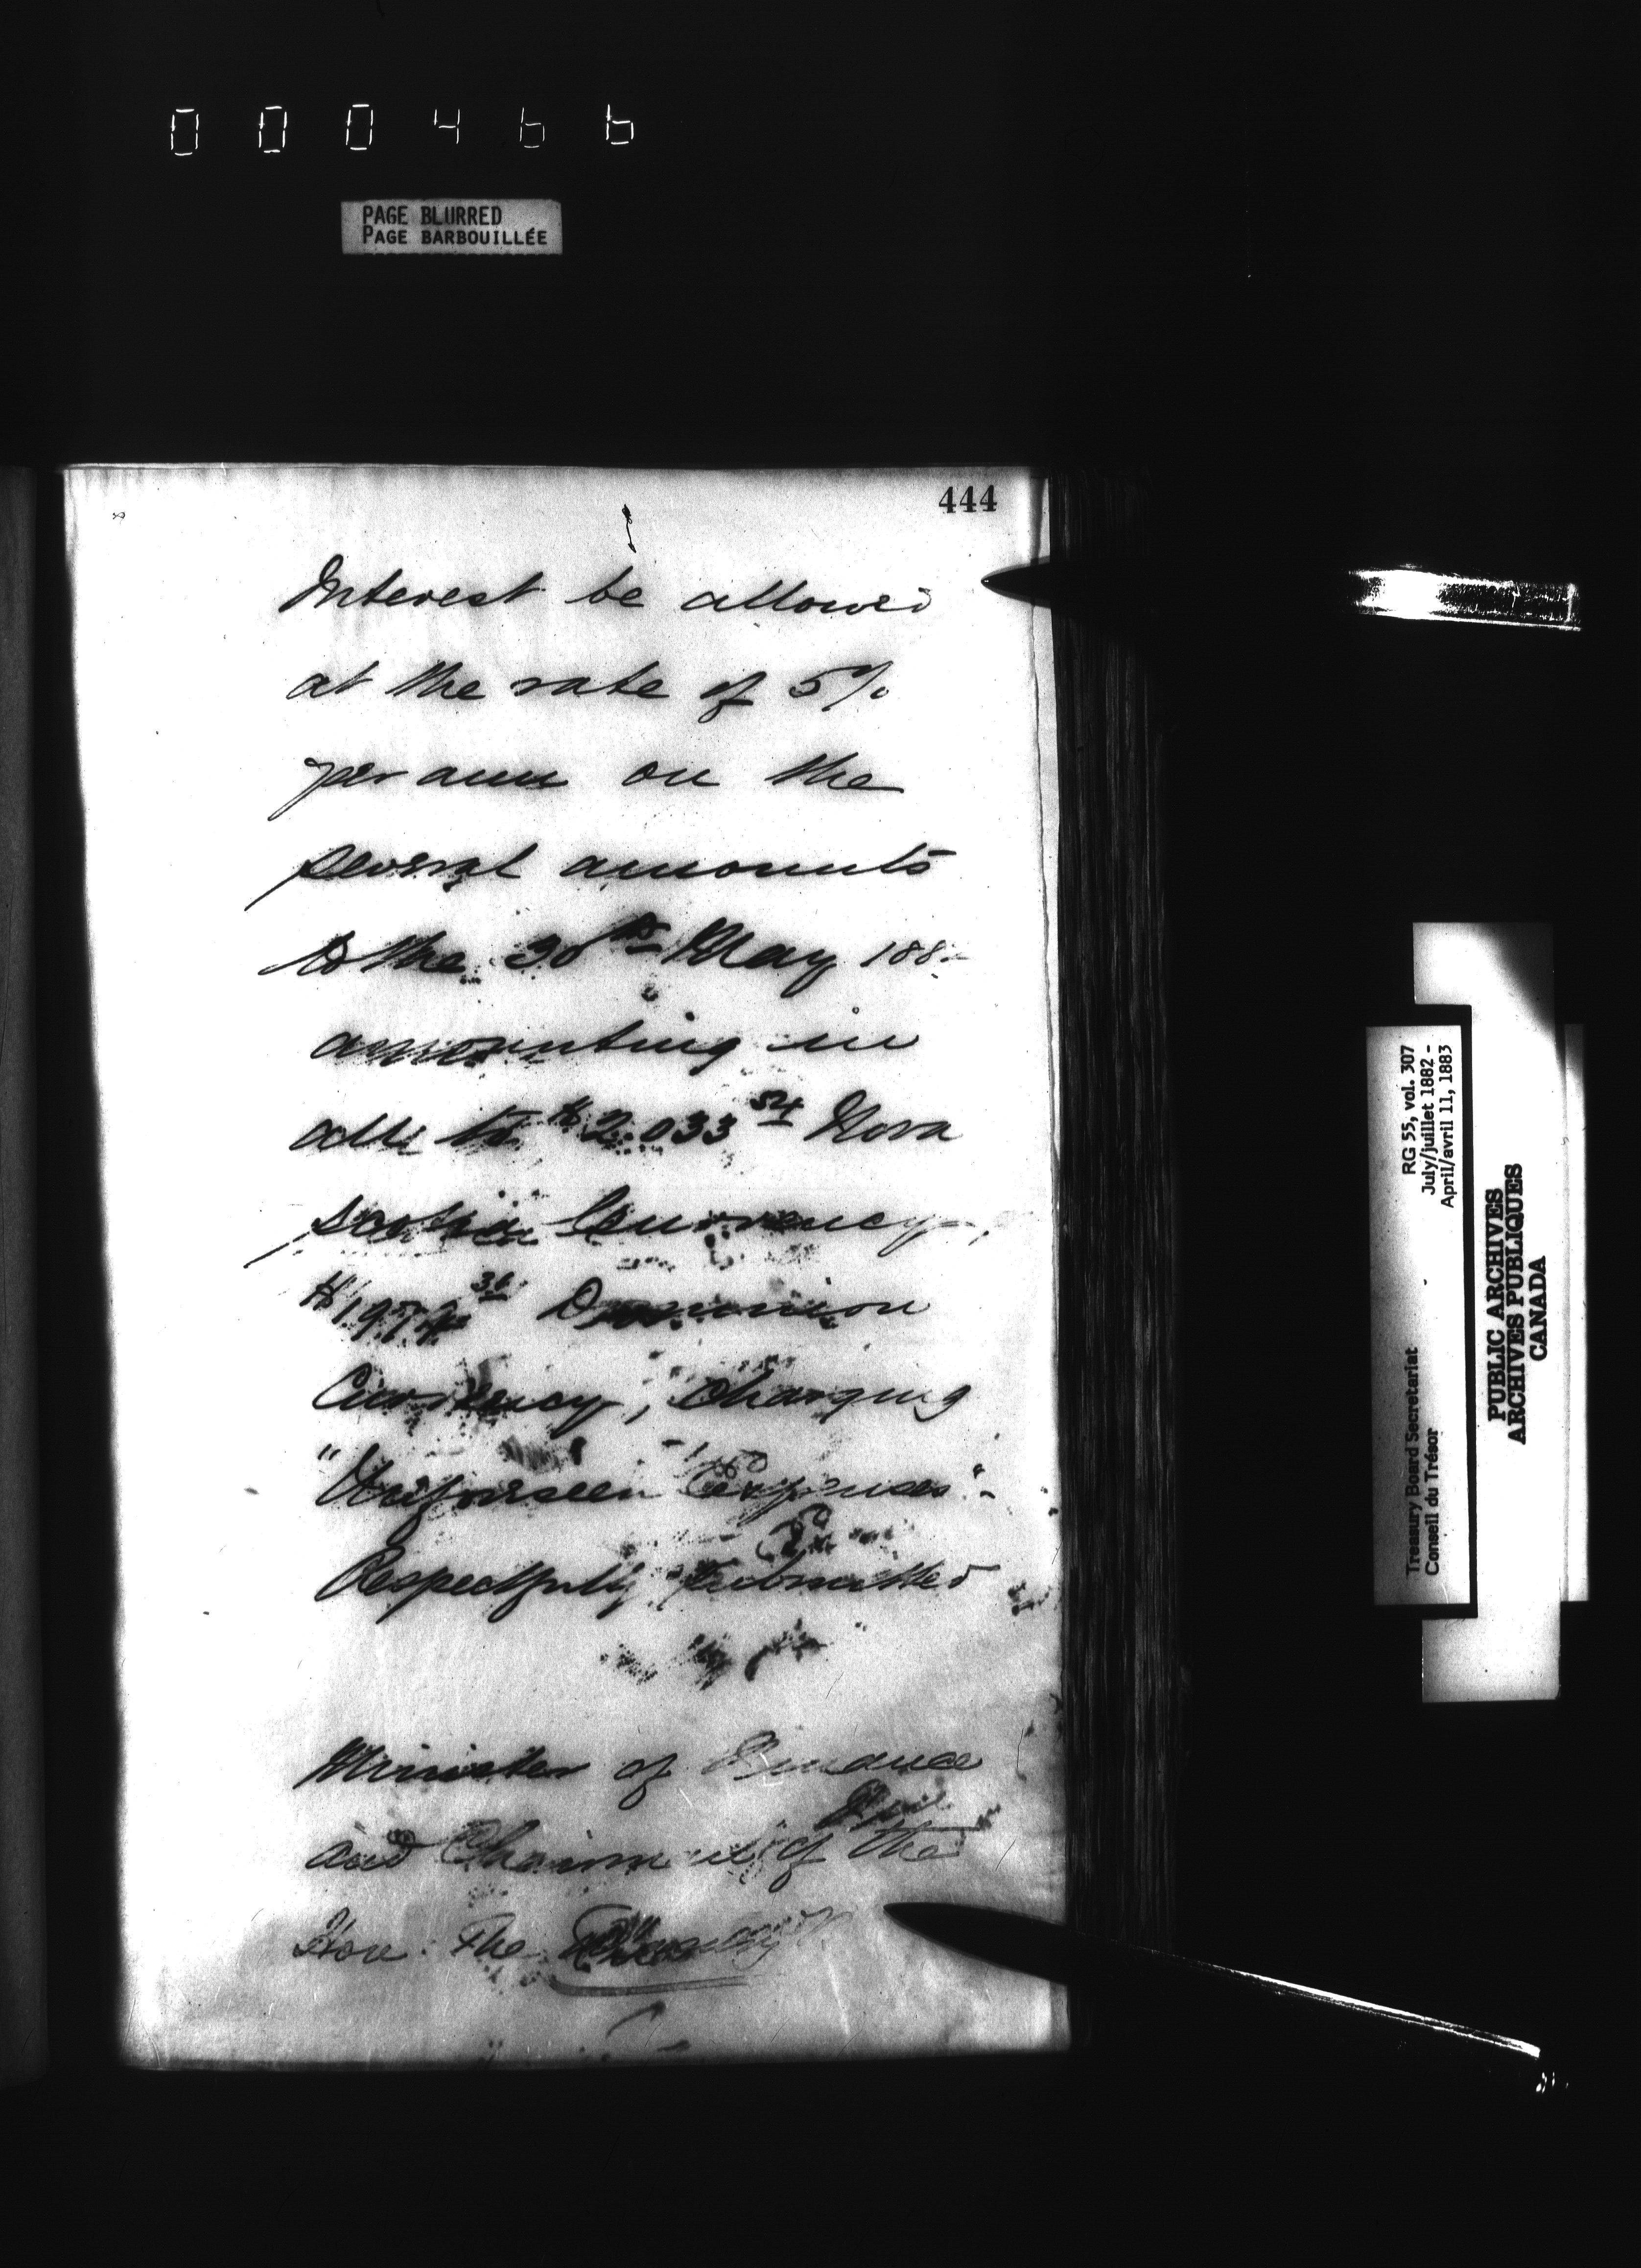 000466
PAGE BLURRED
PAGE BARBOUILLÉE
444
Interest be allowed
at the rate of 5%
per ann on the
several amounts
to the 30th May 188
amounting in
all to $2.033 54 Nova
Scotia Currency,
Dominion
Currency, charging
"Unforseen Expenses".
Respectfully submitted
Minister of Finance
and Chairman of the
Hon: The Treasury
Treasury Board Secretariat RG 55, vol. 307
Conseil du Trésor July/juillet 1882 -
April/avril 11, 1883
PUBLIC ARCHIVES
ARCHIVES PUBLIQUES
CANADA